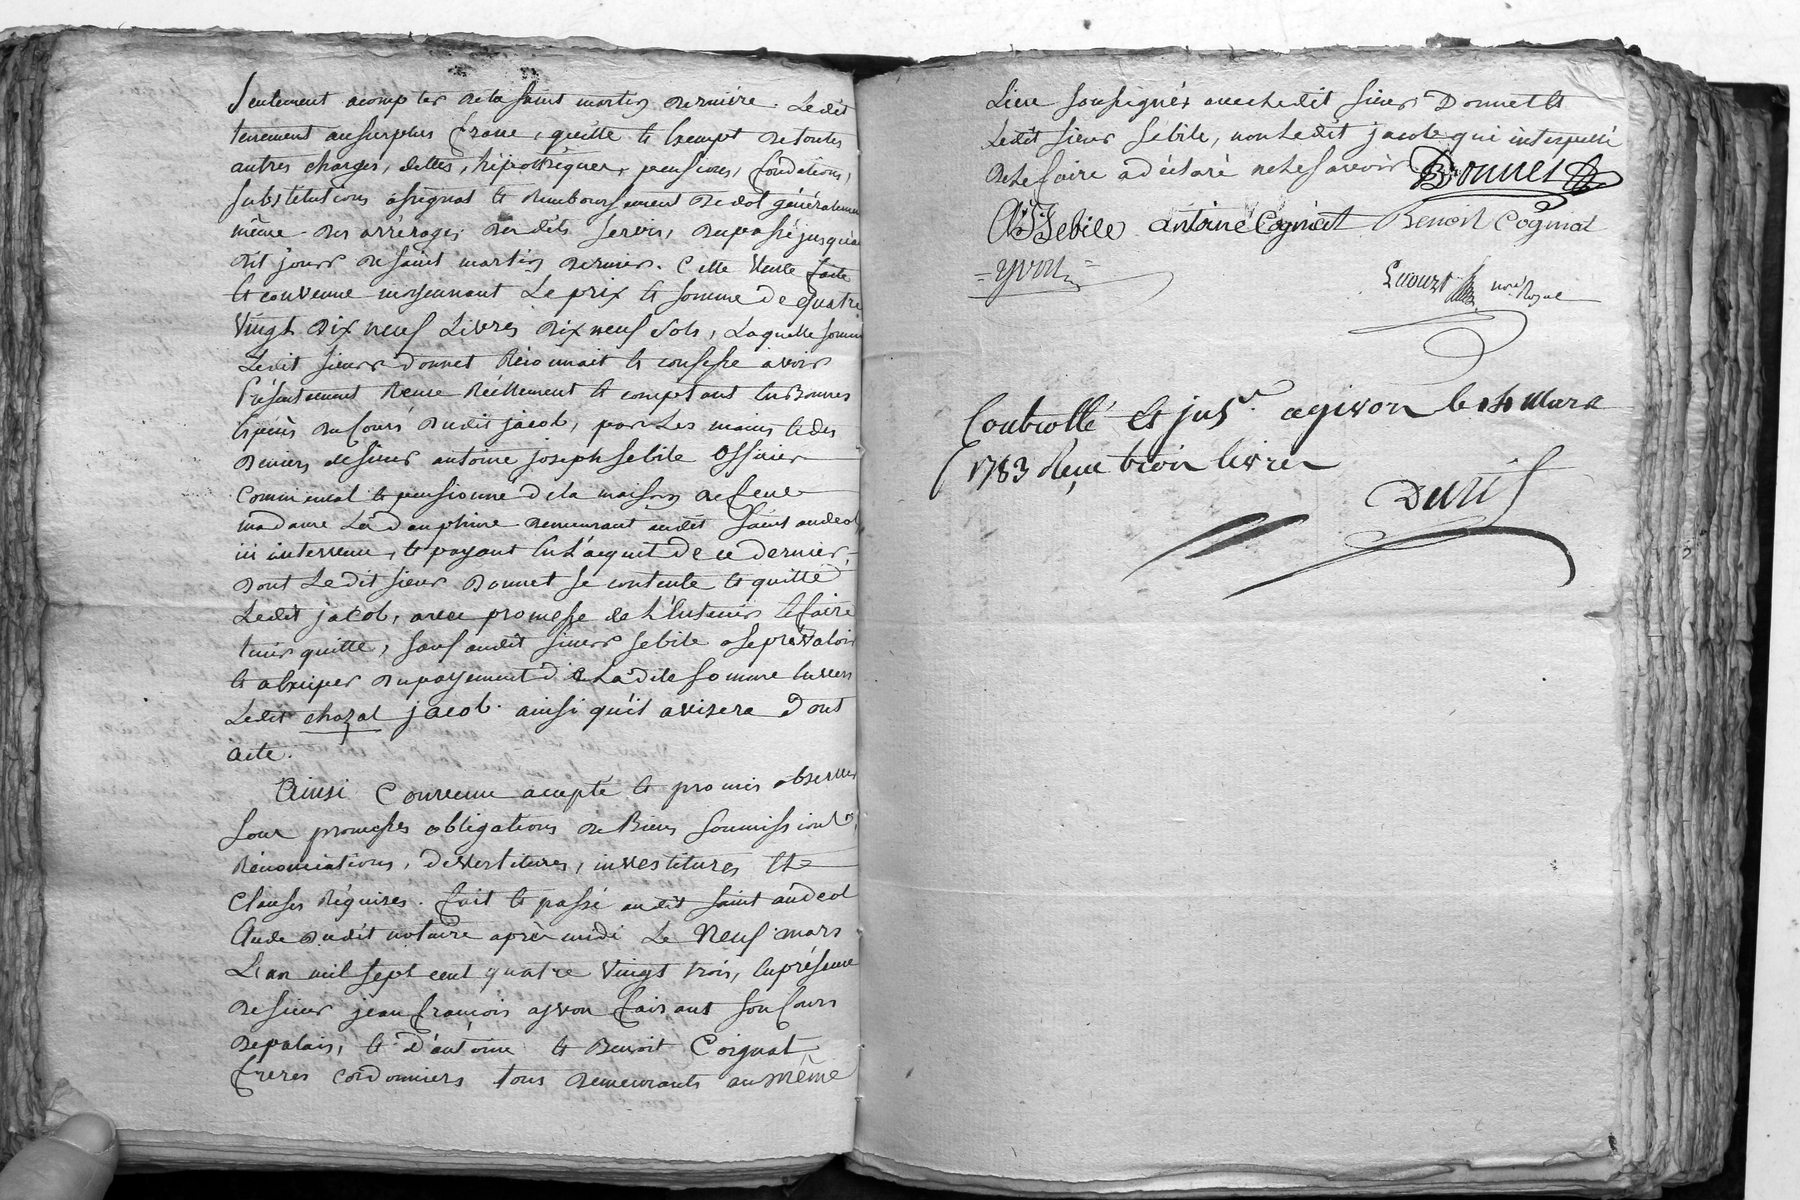 seulement acompter de la saint martin derniere. Ledit
tenement au surplus franc, quitte et exempt de toutes
autres charges, dettes, hipotèques, pensions, fondations,
substitutions assignat et remboursement de dot généralement
même des arrérages desdits servis, du passé jusqu'au
dit jour de saint martin dernier. Cette vente faite
et convenue moyennant Le prix et somme de quatre
vingt dix neuf Livres dix neuf sols, Laquelle somme
Ledit sieur Donnet Reconnait et confesse avoir
Présentement Reçue Réellement et comptant en Bonnes
espèces du cours dudit jacob, par Les mains et des
deniers de sieur antoine joseph sebile officier
commensal et pensionné de la maison de feue
madame La Dauphine demeurant audit saint andeol,
ici intervenu, et payant en L'acquit de ce dernier
dont Ledit sieur Donnet se contente et quitte
Ledit jacob, avec promesse de L'en tenir et faire
tenir quitte, sauf audit sieur sebile a se prévaloir
et a Exiper du payement de La dite somme envers
Ledit chazal jacob ainsi qu'il avisera Dont
acte.
Ainsi Convenu accepté et promis observer
sous promesses obligations de Biens soumissions,
Rénonciations, devestitures, investitures et
clauses Réquises. fait et passé audit saint andeol
Etude dudit notaire après midi Le Neuf mars
L'an mil sept cent quatre vingt trois, en présence
de sieur jean françois ayvon faisant son cours
de palais, et d'antoine et Benoit Coignat
freres cordonniers tous demeurants au même
Lieu soussignés avec Ledit sieur Donnet et
Ledit sieur sebile, non Ledit jacob qui interpellé
de le faire a déclaré ne le savoir Donnet
AJ Sebile antoine Cogniat Benoit Cogniat
= yvon =
not. Royal
Controllé et jns.é a givors le 14 Mars
1783 Reçu trois livres